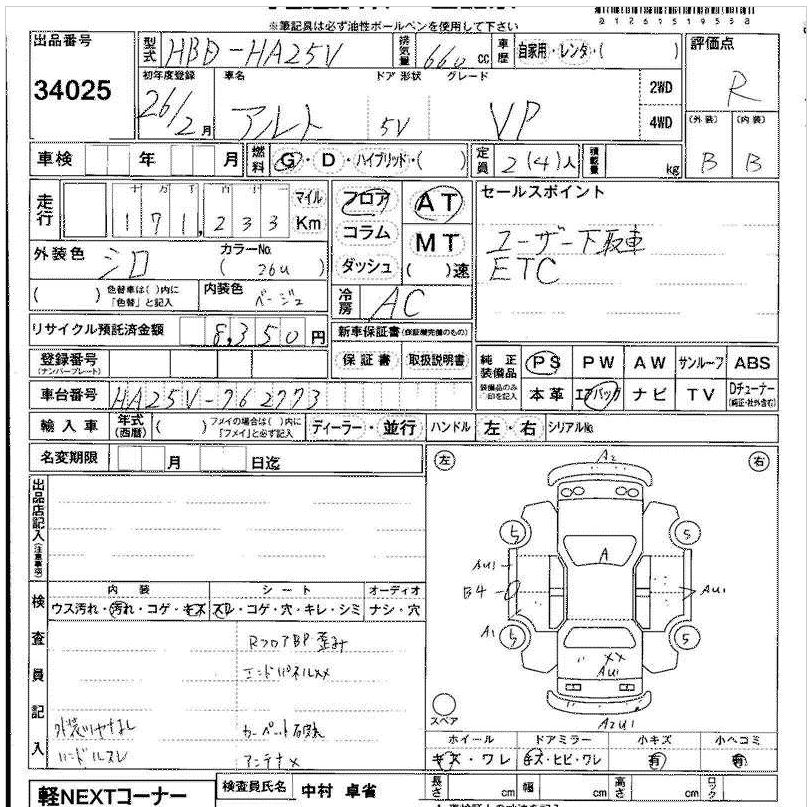 ※筆記具は必ず油性ボールペンを使用して下さい
出品番号
34025
型式 HBD-HA25V
排気量 660 cc
車歴 自家用・レンタ・( )
評価点
R
初年度登録 26/2月
車名 アルト
ドア 形状 5V
グレード VP
2WD
4WD
(外装) B
(内装) B
車検 年 月
燃料 G・D・ハイブリッド・( )
定員 2(4)人
積載量 kg
走行 十万千百十
171,233
マイル
Km
フロア
コラム
ダッシュ
AT
MT
( )速
セールスポイント
ユーザー下取車
ETC
外装色 シロ
カラーNo.
( 26U )
( ) 色替車は( )内に「色替」と記入
内装色 ベージュ
冷房 AC
リサイクル預託済金額 8,350 円
新車保証書(保証機完備のもの)
保証書 取扱説明書
登録番号
(ナンバープレート)
純正装備品
装備品のみ○印を記入
PS PW AW サンルーフ ABS
本革 エアバック ナビ TV Dチューナー
(純正・社外含む)
車台番号 HA25V-762773
輸入車 年式(西暦) ( ) フメイの場合は( )内に「フメイ」と必ず記入
ディーラー・並行 ハンドル 左・右 シリアルNo.
名変期限 月 日迄
左
右
出品店記入(注意事項)
A2
5 5
A
AU1
B4
AU1
A1
5 5
XX
AU1
スペア
A2U1
検査員記入
内装
ウス汚れ・汚れ・コゲ・キズ
シート
スレ・コゲ・穴・キレ・シミ
オーディオ
ナシ・穴
RフロアBP歪み
エンドパネルXX
外装ツヤなし
カーペット破れ
ハンドルスレ
アンテナ×
ホイール ドアミラー 小キズ 小ヘコミ
キズ・ワレ キズ・ヒビ・ワレ 有 有
軽NEXTコーナー
検査員氏名 中村 卓省
長さ cm 幅 cm 高さ cm ロック